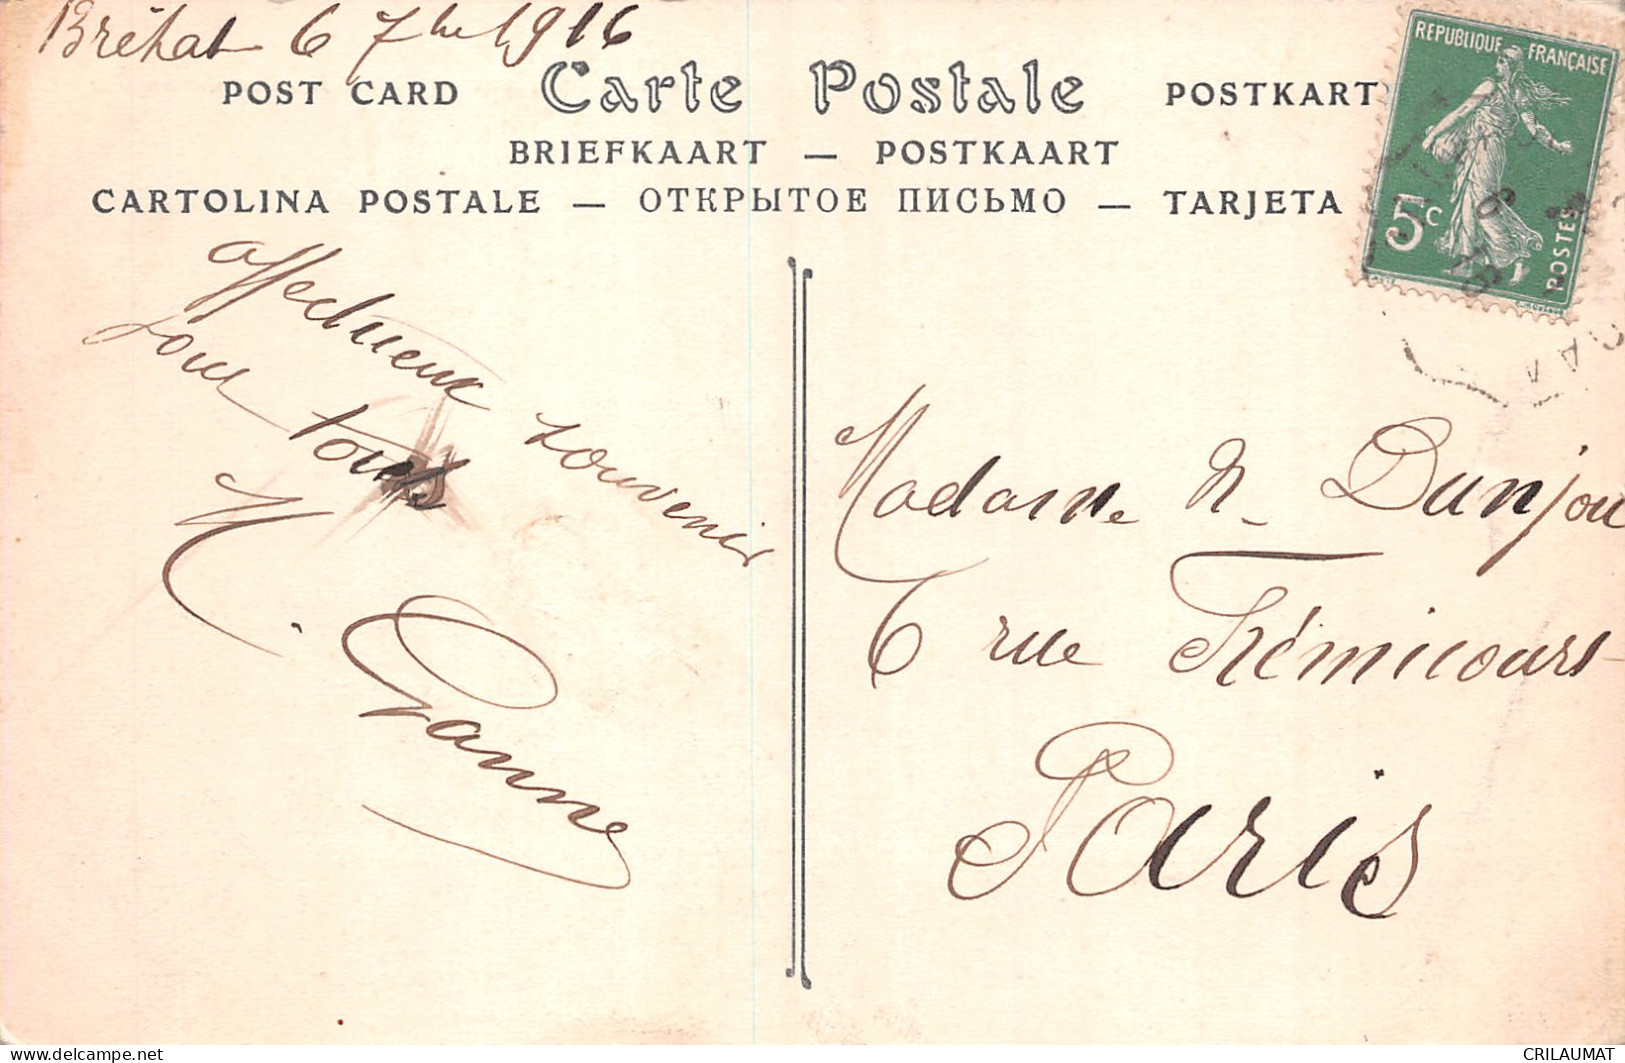 Bréhat 6 7bre 1916
POST CARD Carte Postale POSTKART
BRIEFKAART — POSTKAART
CARTOLINA POSTALE — ОТКРЫТОЕ ПИСЬМО — TARJETA
REPUBLIQUE FRANÇAISE
5c
POSTES
affectueux souvenir
pour tous
M. Ganne
Madame N. Dunjou
6 rue Frémicourt
Paris
https://www.delcampe.net
CRILAUMAT